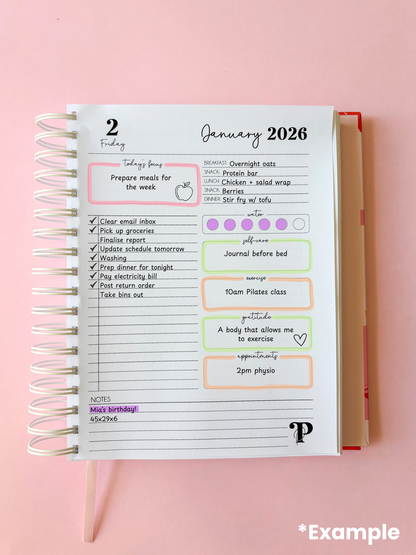 2
Friday
January 2026
today's focus
Prepare meals for
the week
BREAKFAST: Overnight oats
SNACK: Protein bar
LUNCH: Chicken + salad wrap
SNACK: Berries
DINNER: Stir fry w/ tofu
Clear email inbox
Pick up groceries
Finalise report
Update schedule tomorrow
Washing
Prep dinner for tonight
Pay electricity bill
Post return order
Take bins out
water
self-care
Journal before bed
exercise
10am Pilates class
gratitude
A body that allows me
to exercise
appointments
2pm physio
NOTES
Mia's birthday!
45x29x6
P
*Example